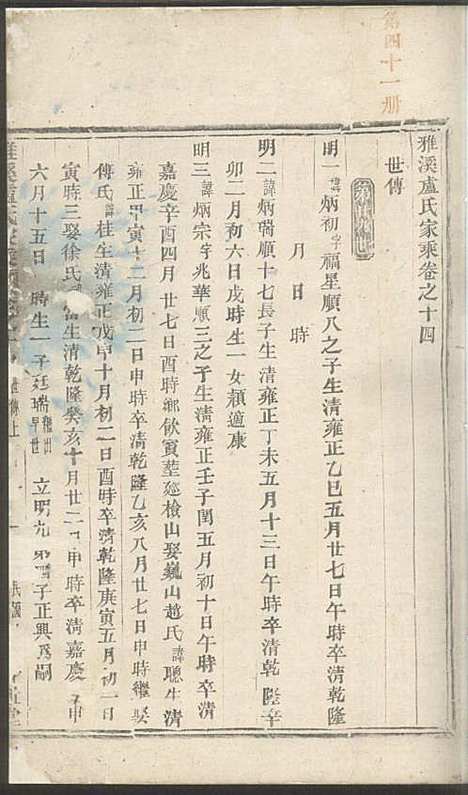 第四十一册
雅溪盧氏家乘卷之十四
世傳
明一諱炳初字福星順八之子生清雍正乙巳五月廿七日午時卒清乾隆
月日時
明二諱炳瑞順十七長子生清雍正丁未五月十三日午時卒清乾隆辛
卯二月初六日戌時生一女頴適康
明三諱炳宗字兆華順三之子生清雍正壬子閏五月初十日午時卒清
嘉慶辛酉四月廿七日酉時鄉飲賓塟延檢山娶巍山趙氏諱聰生清
雍正甲寅十二月初二日申時卒清乾隆乙亥八月廿七日申時繼娶
傅氏諱桂生清雍正戊申十月初一日酉時卒清乾隆庚寅五月初一日
寅時三娶徐氏生清乾隆癸亥十月廿二日申時卒清嘉慶申
六月十五日時生一子廷瑞早世立明九弟子正興為嗣
世傳上